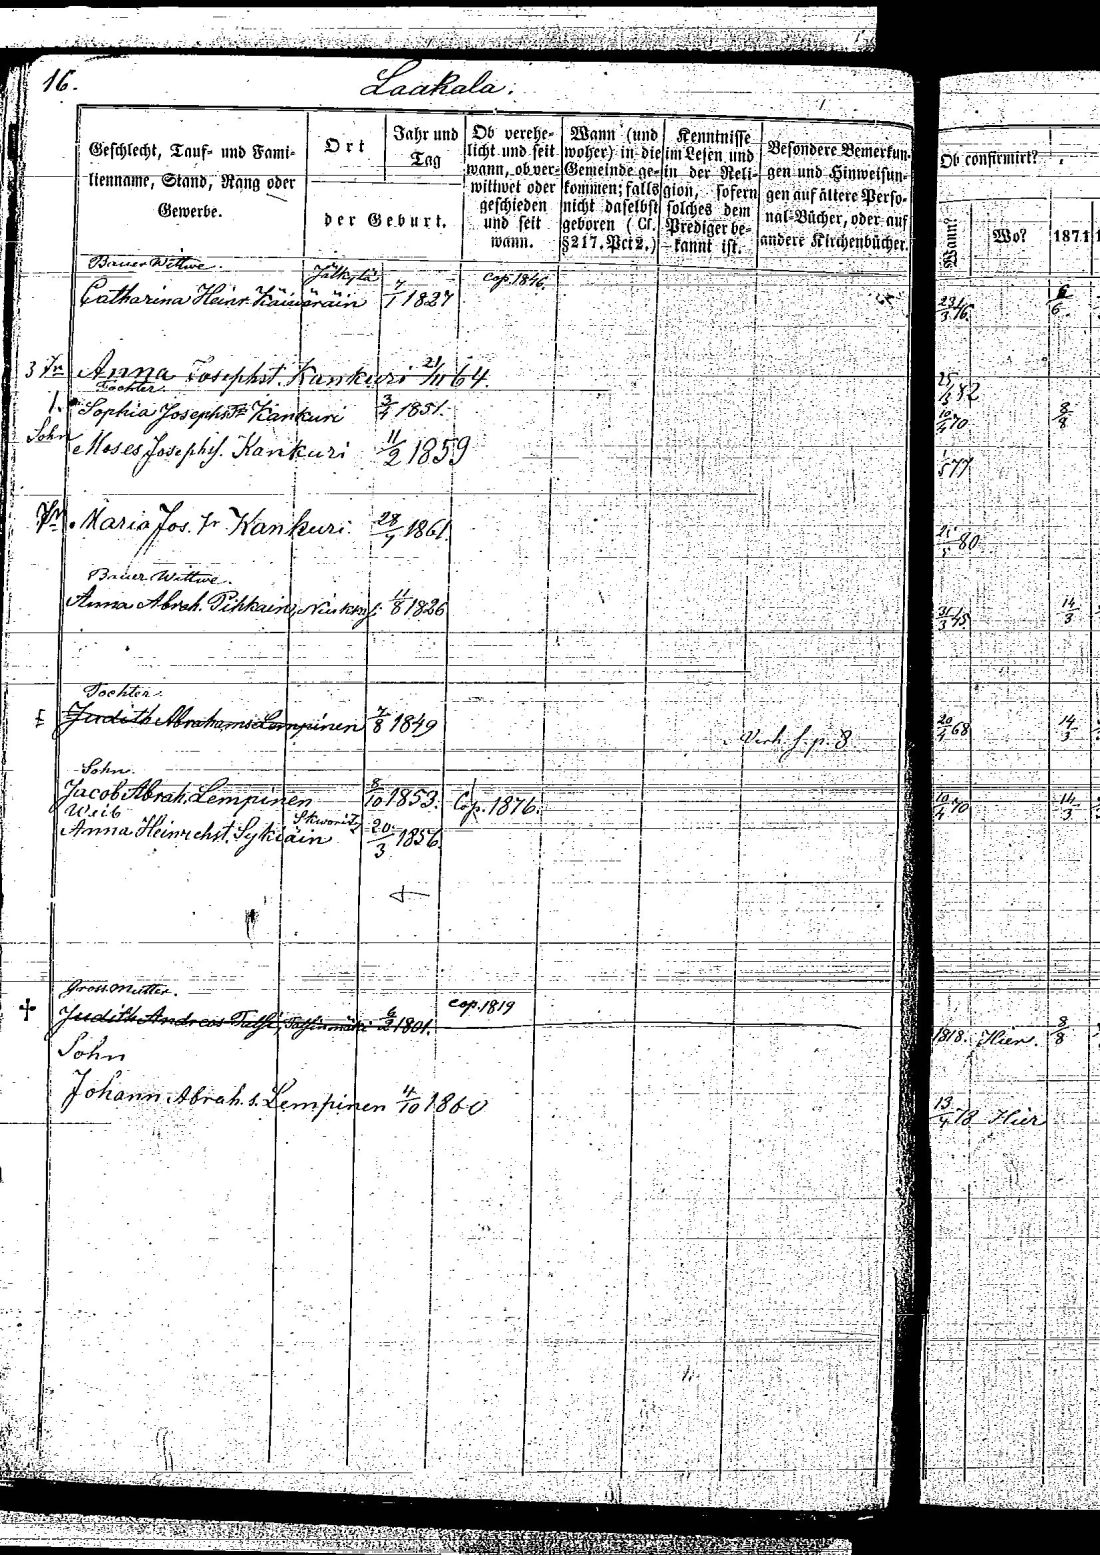 16.
Laakala.
Geschlecht, Tauf- und Fami-
lienname, Stand, Rang oder
Gewerbe.
Ort
Jahr und
Tag
der Geburt.
Ob verehe-
licht und seit
wann, ob ver-
wittwet oder
geschieden
und seit
wann.
Wann (und
woher) in die
Gemeinde ge-
kommen; falls
nicht daselbst
geboren (Cf.
§217. Pct 2.)
Kenntnisse
im Lesen und
in der Reli-
gion, sofern
solches dem
Prediger be-
kannt ist.
Besondere Bemerkun-
gen und Hinweisun-
gen auf ältere Perso-
nal-Bücher, oder auf
andere Kirchenbücher.
Ob confirmirt?
Wann?
Wo?
1871
Bauer Wittwe.
Catharina Heinr. 7/1 1827 cop. 1846. 6/6.
3 Tr Anna Josephst. Kankuri 21/11 64 25/5 82
Tochter
1. Sophia Josephst. Kankuri 3/4 1851. 10/4 70 8/8
Sohn Moses Josephs. Kankuri 11/2 1859 577
Maria Jos. Tr Kankuri. 28/7 1861. 80
Bauer Wittwe.
Anna Abrah. Pihkain, 11/8 1826 31/3 45 14/3
Tochter.
Judith Abrahams Lempinen 7/8 1849 Verh. f. p. 8 20/4 68 14/3
Sohn.
Jacob Abrah. Lempinen 8/10 1853. Cop. 1876. 10/4 70 14/3
Weib Skworitz
Anna Heinrchst. Sykiäin 20/3 1856
Grossmutter.
Judith Andreas Talsi, 6/2 1801. cop. 1819 1818. Hier. 8/8
Sohn
Johann Abrah. s. Lempinen 4/10 1860 13/4 78 Hier